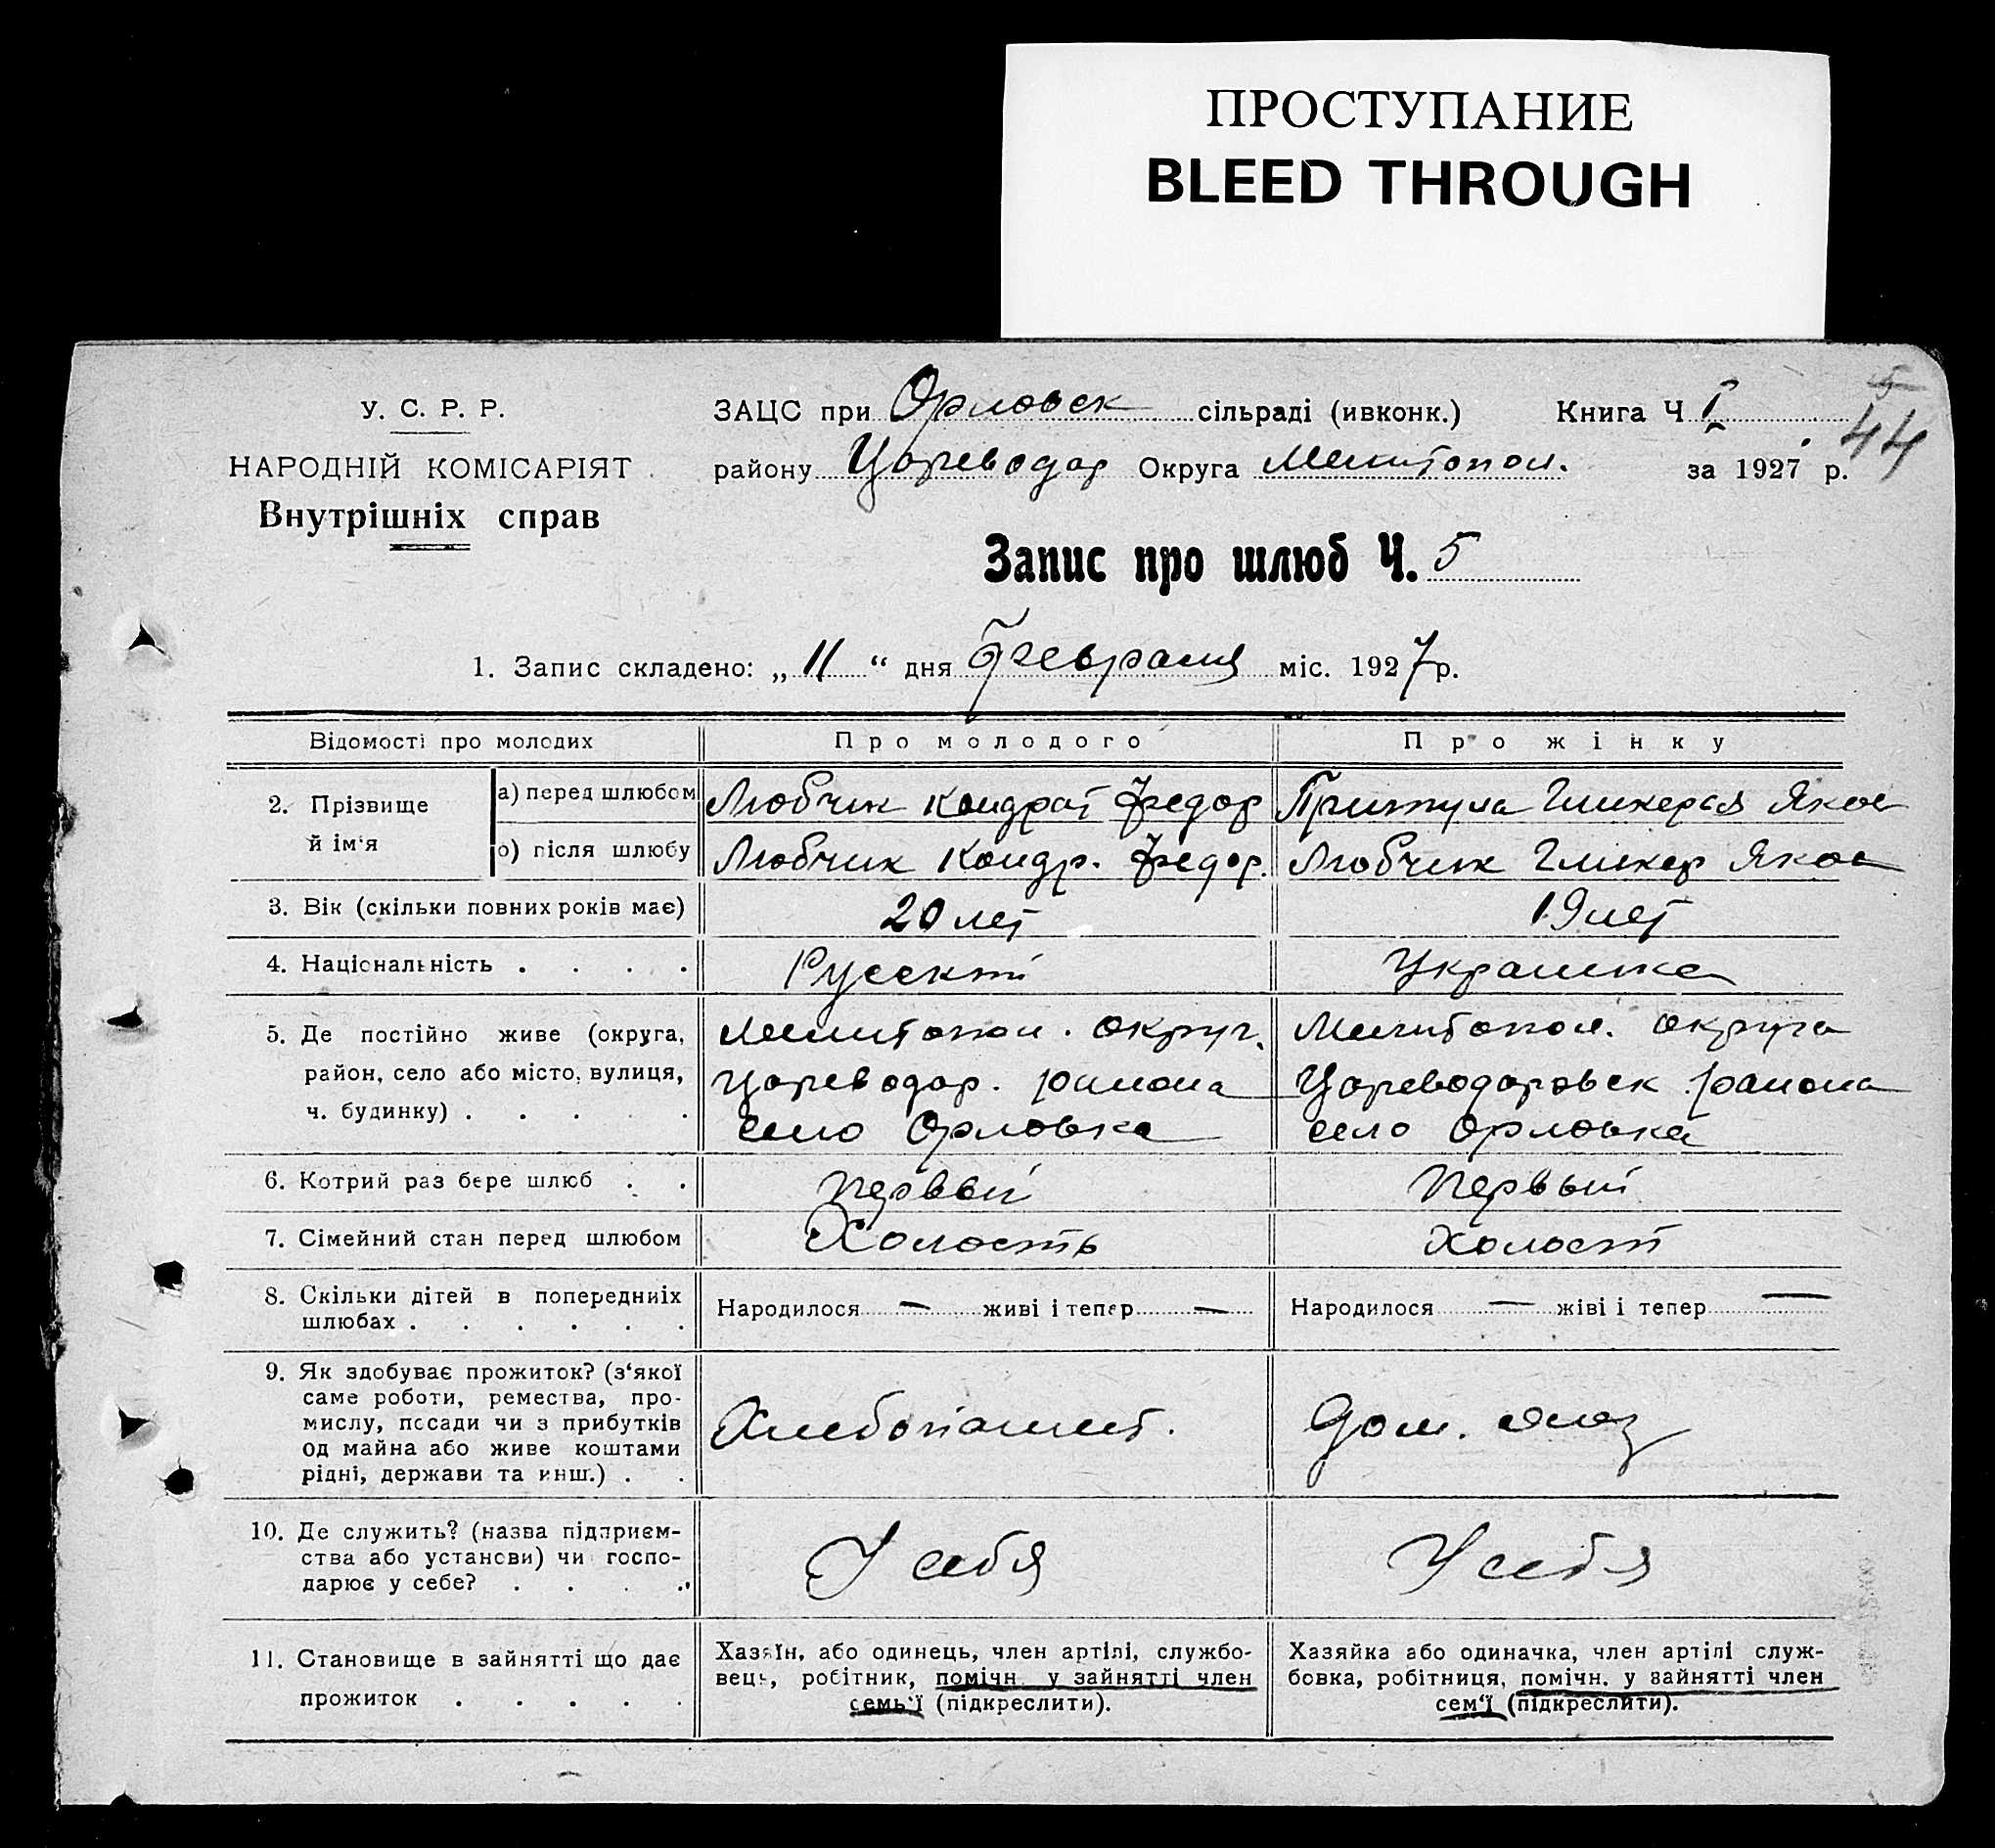 ПРОСТУПАНИЕ
BLEED THROUGH
5
44
У. С. Р. Р.
НАРОДНІЙ КОМІСАРІЯТ
Внутрішніх справ
ЗАЦС при Орловск сільраді (ивконк.) Книга Ч I
району Цареводар Округа Мелитопол. за 1927 р.
Запис про шлюб Ч. 5
1. Запис складено: „ 11 “ дня Февраля міс. 1927 р.
Відомості про молодих Про молодого Про жінку
2. Прізвище й ім‘я
а) перед шлюбом Любчик Кондрат Федор Притула Гликерия Яков
о) після шлюбу Любчик Кондр. Федор. Любчик Гликер Яков
3. Вік (скільки повних років має) 20 лет 19 лет
4. Національність . . . . Русский Украинка
5. Де постійно живе (округа, Мелитопол. округ. Мелитопол. округа
район, село або місто, вулиця, Цареводар. района Цареводаровск района
ч. будинку) . . . . . село Орловка село Орловка
6. Котрий раз бере шлюб . . первый первый
7. Сімейний стан перед шлюбом Холость холост
8. Скільки дітей в попередниіх
шлюбах . . . . . . Народилося — живі і тепер — Народилося — жіві і тепер —
9. Як здобуває прожиток? (з‘якої
саме роботи, ремества, про-
мислу, посади чи з прибутків
од майна або живе коштами
рідні, держави та инш.) . .
Хлебопашест. Дом.
10. Де служить? (назва підприєм-
ства або установи) чи госпо-
дарює у себе? . . . .
У себя У себя
11. Становище в зайнятті що дає
прожиток . . . . .
Хазяїн, або одинець, член артілі, службо-
вець, робітник, помічн. у зайнятті член
семь‘ї (підкреслити).
Хазяйка або одиначка, член артілі служ-
бовка, робітниця, помічн. у зайнятті член
сем‘ї (підкреслити).